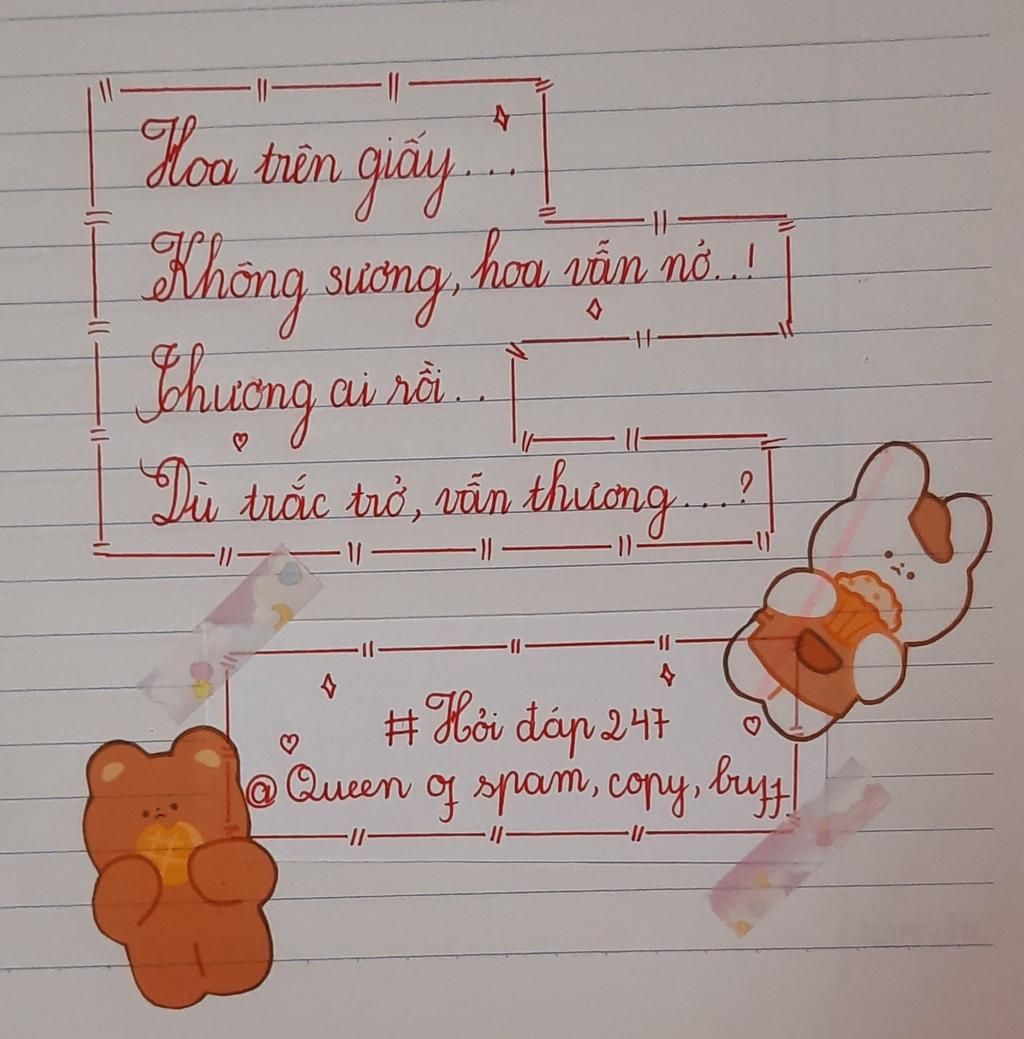 Hoa trên giấy...
Không sương, hoa vẫn nở..!
Thương ai rồi..
Dù trắc trở, vẫn thương...?
# Hỏi đáp 247
@ Queen of spam, copy, buff